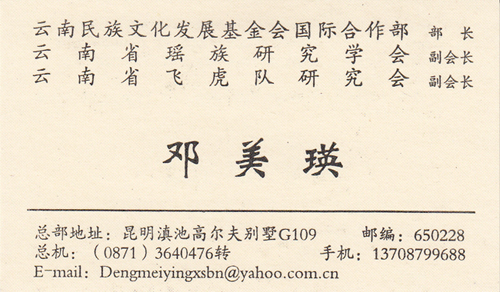 云南民族文化发展基金会国际合作部 部长
云南省瑶族研究学会 副会长
云南省飞虎队研究会 副会长
邓美瑛
总部地址：昆明滇池高尔夫别墅G109 邮编：650228
总机：（0871）3640476转 手机：13708799688
E-mail：Dengmeiyingxsbn@yahoo.com.cn